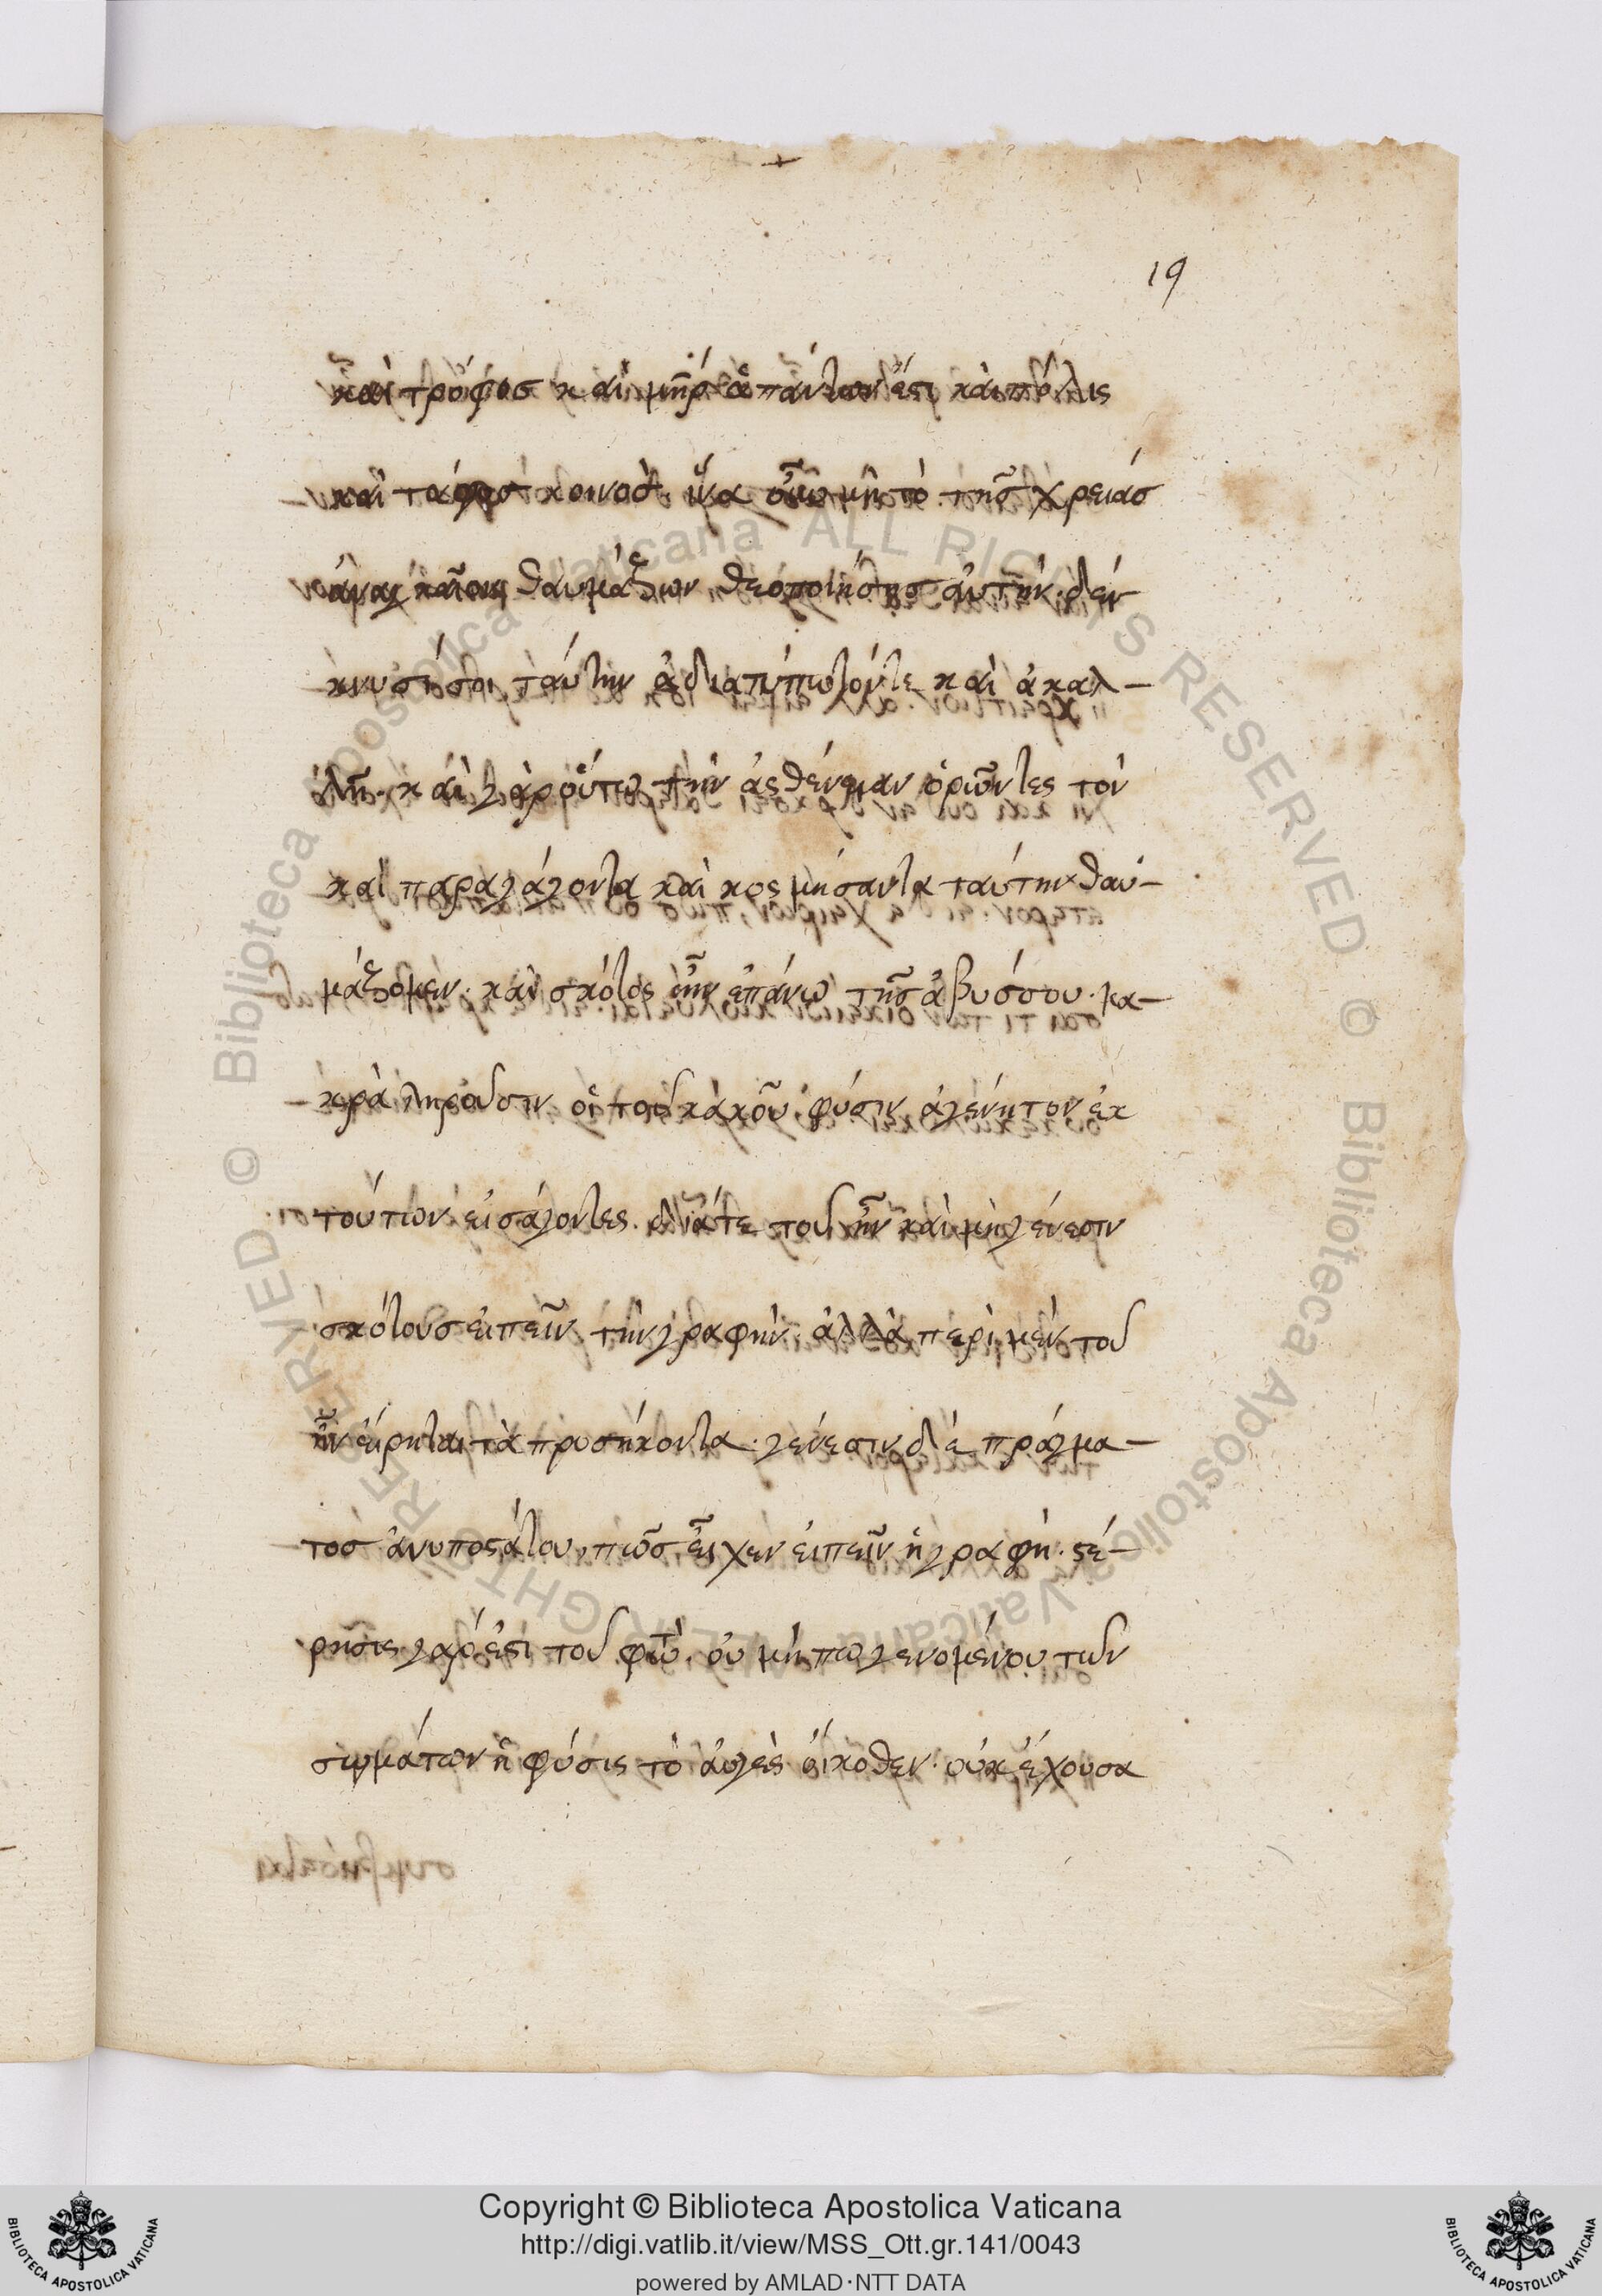 19
καὶ τρόφος καὶ μηρ ἁπάντων ἐστὶ καὶ πόλις
καὶ τάφος κοινος. ἵνα οὖν μὴ τὸ τῆς χρειάσ
ἀναγκαῖον θαυμάζων θεοποιήσησ αὐτὴν. δεί-
κνυσί σοι ταύτην ἀδιατύπωτόν τε καὶ ἀκαλ-
λῆ. καὶ γὰρ οὕτω τὴν ἀσθένειαν ὁρῶντες τὸν
καὶ παραγάγοντα καὶ κοσμήσαντα ταύτην θαυ-
μάζομεν. καὶ σκότος ἦν ἐπάνω τῆς ἀβύσσου. μα-
κρὰ ληροῦσιν οἱ τοῦ κακοῦ φύσιν ἀγένητον ἐκ
τούτων εἰσάγοντες. διάτε τοῦ ἦν καὶ μὴ γένεσιν
σκότους εἰπεῖν τὴν γραφὴν. ἀλλὰ περὶ μὲν τοῦ
ἦν εἴρηται τὰ προσήκοντα. γένεσιν δὲ πράγμα-
τοσ ἀνυποστάτου, πῶσ εἶχεν εἰπεῖν ἡ γραφὴ. στέ-
ρησις γάρ ἐστι τοῦ φωτὸ. οὐ μήπω γενομένου τῶν
σωμάτων ἡ φύσις τὸ ἀφεγγὲς οἴκοθεν οὐκ ἔχουσα
Copyright © Biblioteca Apostolica Vaticana
http://digi.vatlib.it/view/MSS_Ott.gr.141/0043
powered by AMLAD·NTT DATA
BIBLIOTECA APOSTOLICA VATICANA
BIBLIOTECA APOSTOLICA VATICANA
© Biblioteca Apostolica Vaticana ALL RIGHTS RESERVED © Biblioteca Apostolica Vaticana ALL RIGHTS RESERVED